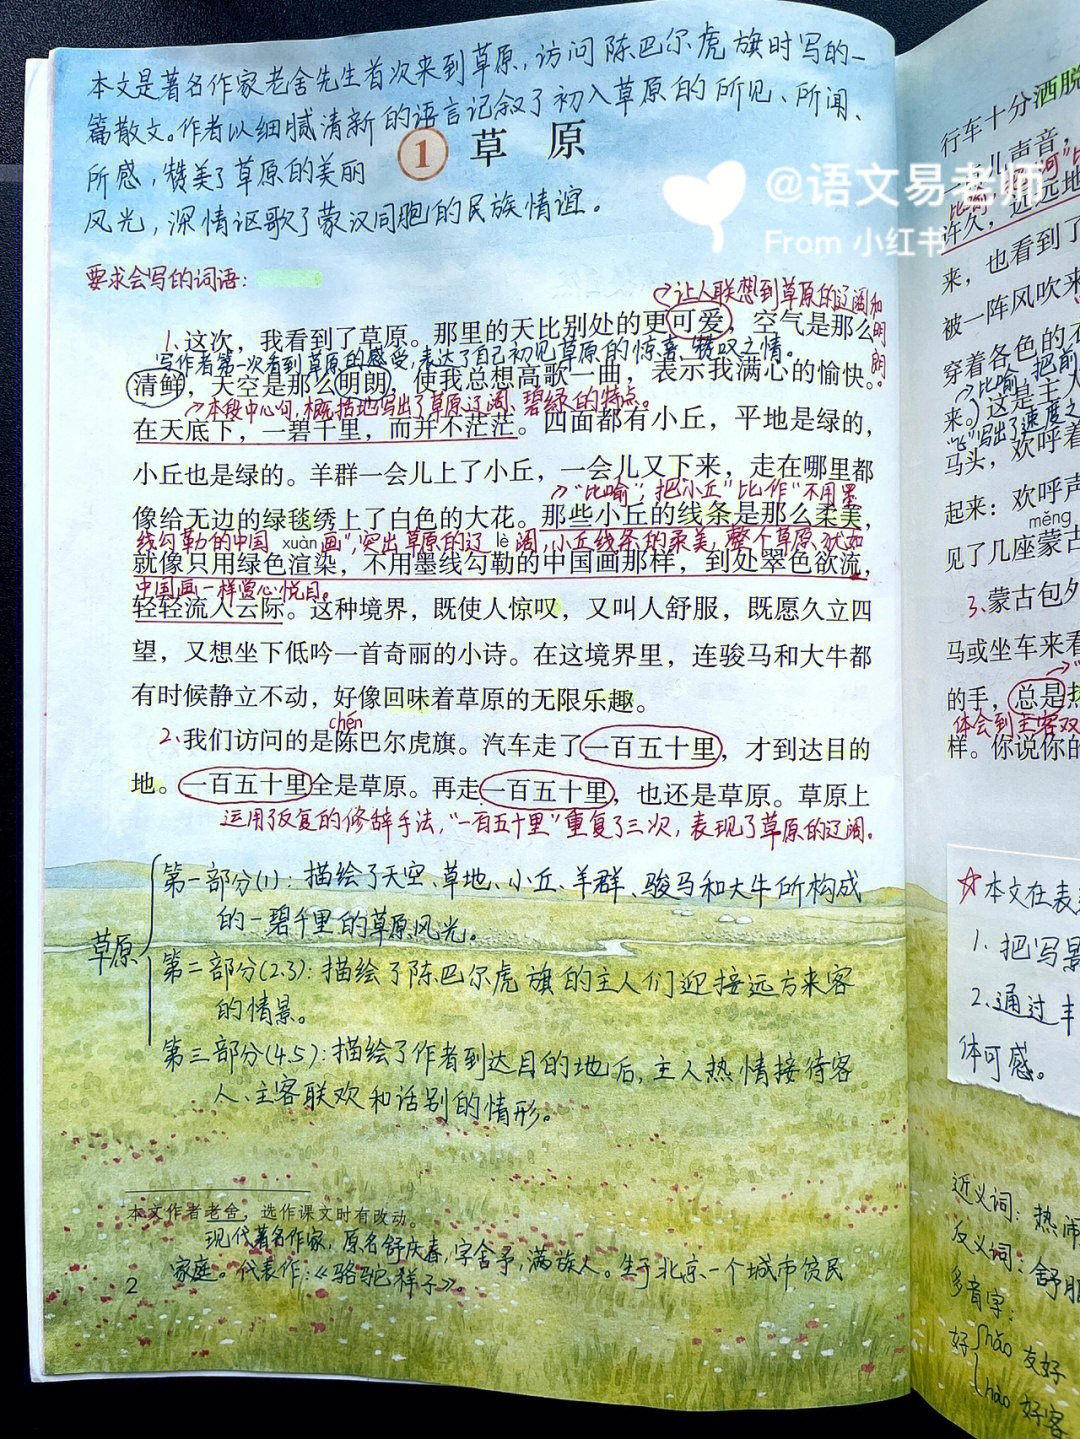 本文是著名作家老舍先生首次来到草原，访问陈巴尔虎旗时写的一
篇散文。作者以细腻清新的语言记叙了初入草原的所见、所闻、
所感，赞美了草原的美丽
风光，深情讴歌了蒙汉同胞的民族情谊。
1 草原
@语文易老师
From 小红书
要求会写的词语：
让人联想到草原的辽阔和明朗。
1.这次，我看到了草原。那里的天比别处的更可爱，空气是那么
写作者第一次看到草原的感受，表达了自己初见草原的惊喜、赞叹之情。
清鲜，天空是那么明朗，使我总想高歌一曲，表示我满心的愉快。
本段中心句，概括地写出了草原辽阔、碧绿的特点。
在天底下，一碧千里，而并不茫茫。四面都有小丘，平地是绿的，
小丘也是绿的。羊群一会儿上了小丘，一会儿又下来，走在哪里都
"比喻"，把"小丘"比作"不用墨
像给无边的绿毯绣上了白色的大花。那些小丘的线条是那么柔美，
线勾勒的中国画"，突出草原的辽阔，小丘线条的柔美，整个草原犹如
xuàn lè
就像只用绿色渲染，不用墨线勾勒的中国画那样，到处翠色欲流，
中国画一样赏心悦目。
轻轻流入云际。这种境界，既使人惊叹，又叫人舒服，既愿久立四
望，又想坐下低吟一首奇丽的小诗。在这境界里，连骏马和大牛都
有时候静立不动，好像回味着草原的无限乐趣。
chén
2.我们访问的是陈巴尔虎旗。汽车走了一百五十里，才到达目的
地。一百五十里全是草原。再走一百五十里，也还是草原。草原上
运用了反复的修辞手法，"一百五十里"重复了三次，表现了草原的辽阔。
草原
第一部分(1)：描绘了天空、草地、小丘、羊群、骏马和大牛所构成
的一碧千里的草原风光。
第二部分(2.3)：描绘了陈巴尔虎旗的主人们迎接远方来客
的情景。
第三部分(4.5)：描绘了作者到达目的地后，主人热情接待客
人、主客联欢和话别的情形。
本文作者老舍，选作课文时有改动。
现代著名作家，原名舒庆春，字舍予，满族人。生于北京一个城市贫民
家庭。代表作：《骆驼祥子》。
2
行车十分洒脱
儿声音，
许久，远远地
来，也看到了
被一阵风吹来
穿着各色的
比喻 把前
来。这是主人
"飞"写出了速度之
马头，欢呼着
起来：欢呼声
měng
见了几座蒙古
3.蒙古包外
马或坐车来看
的手，总是热
体会到主客双
样。你说你的
☆本文在表
1.把写景
2.通过丰
体可感。
近义词：热闹
反义词：舒服
多音字：
好 hǎo 友好
hào 好客